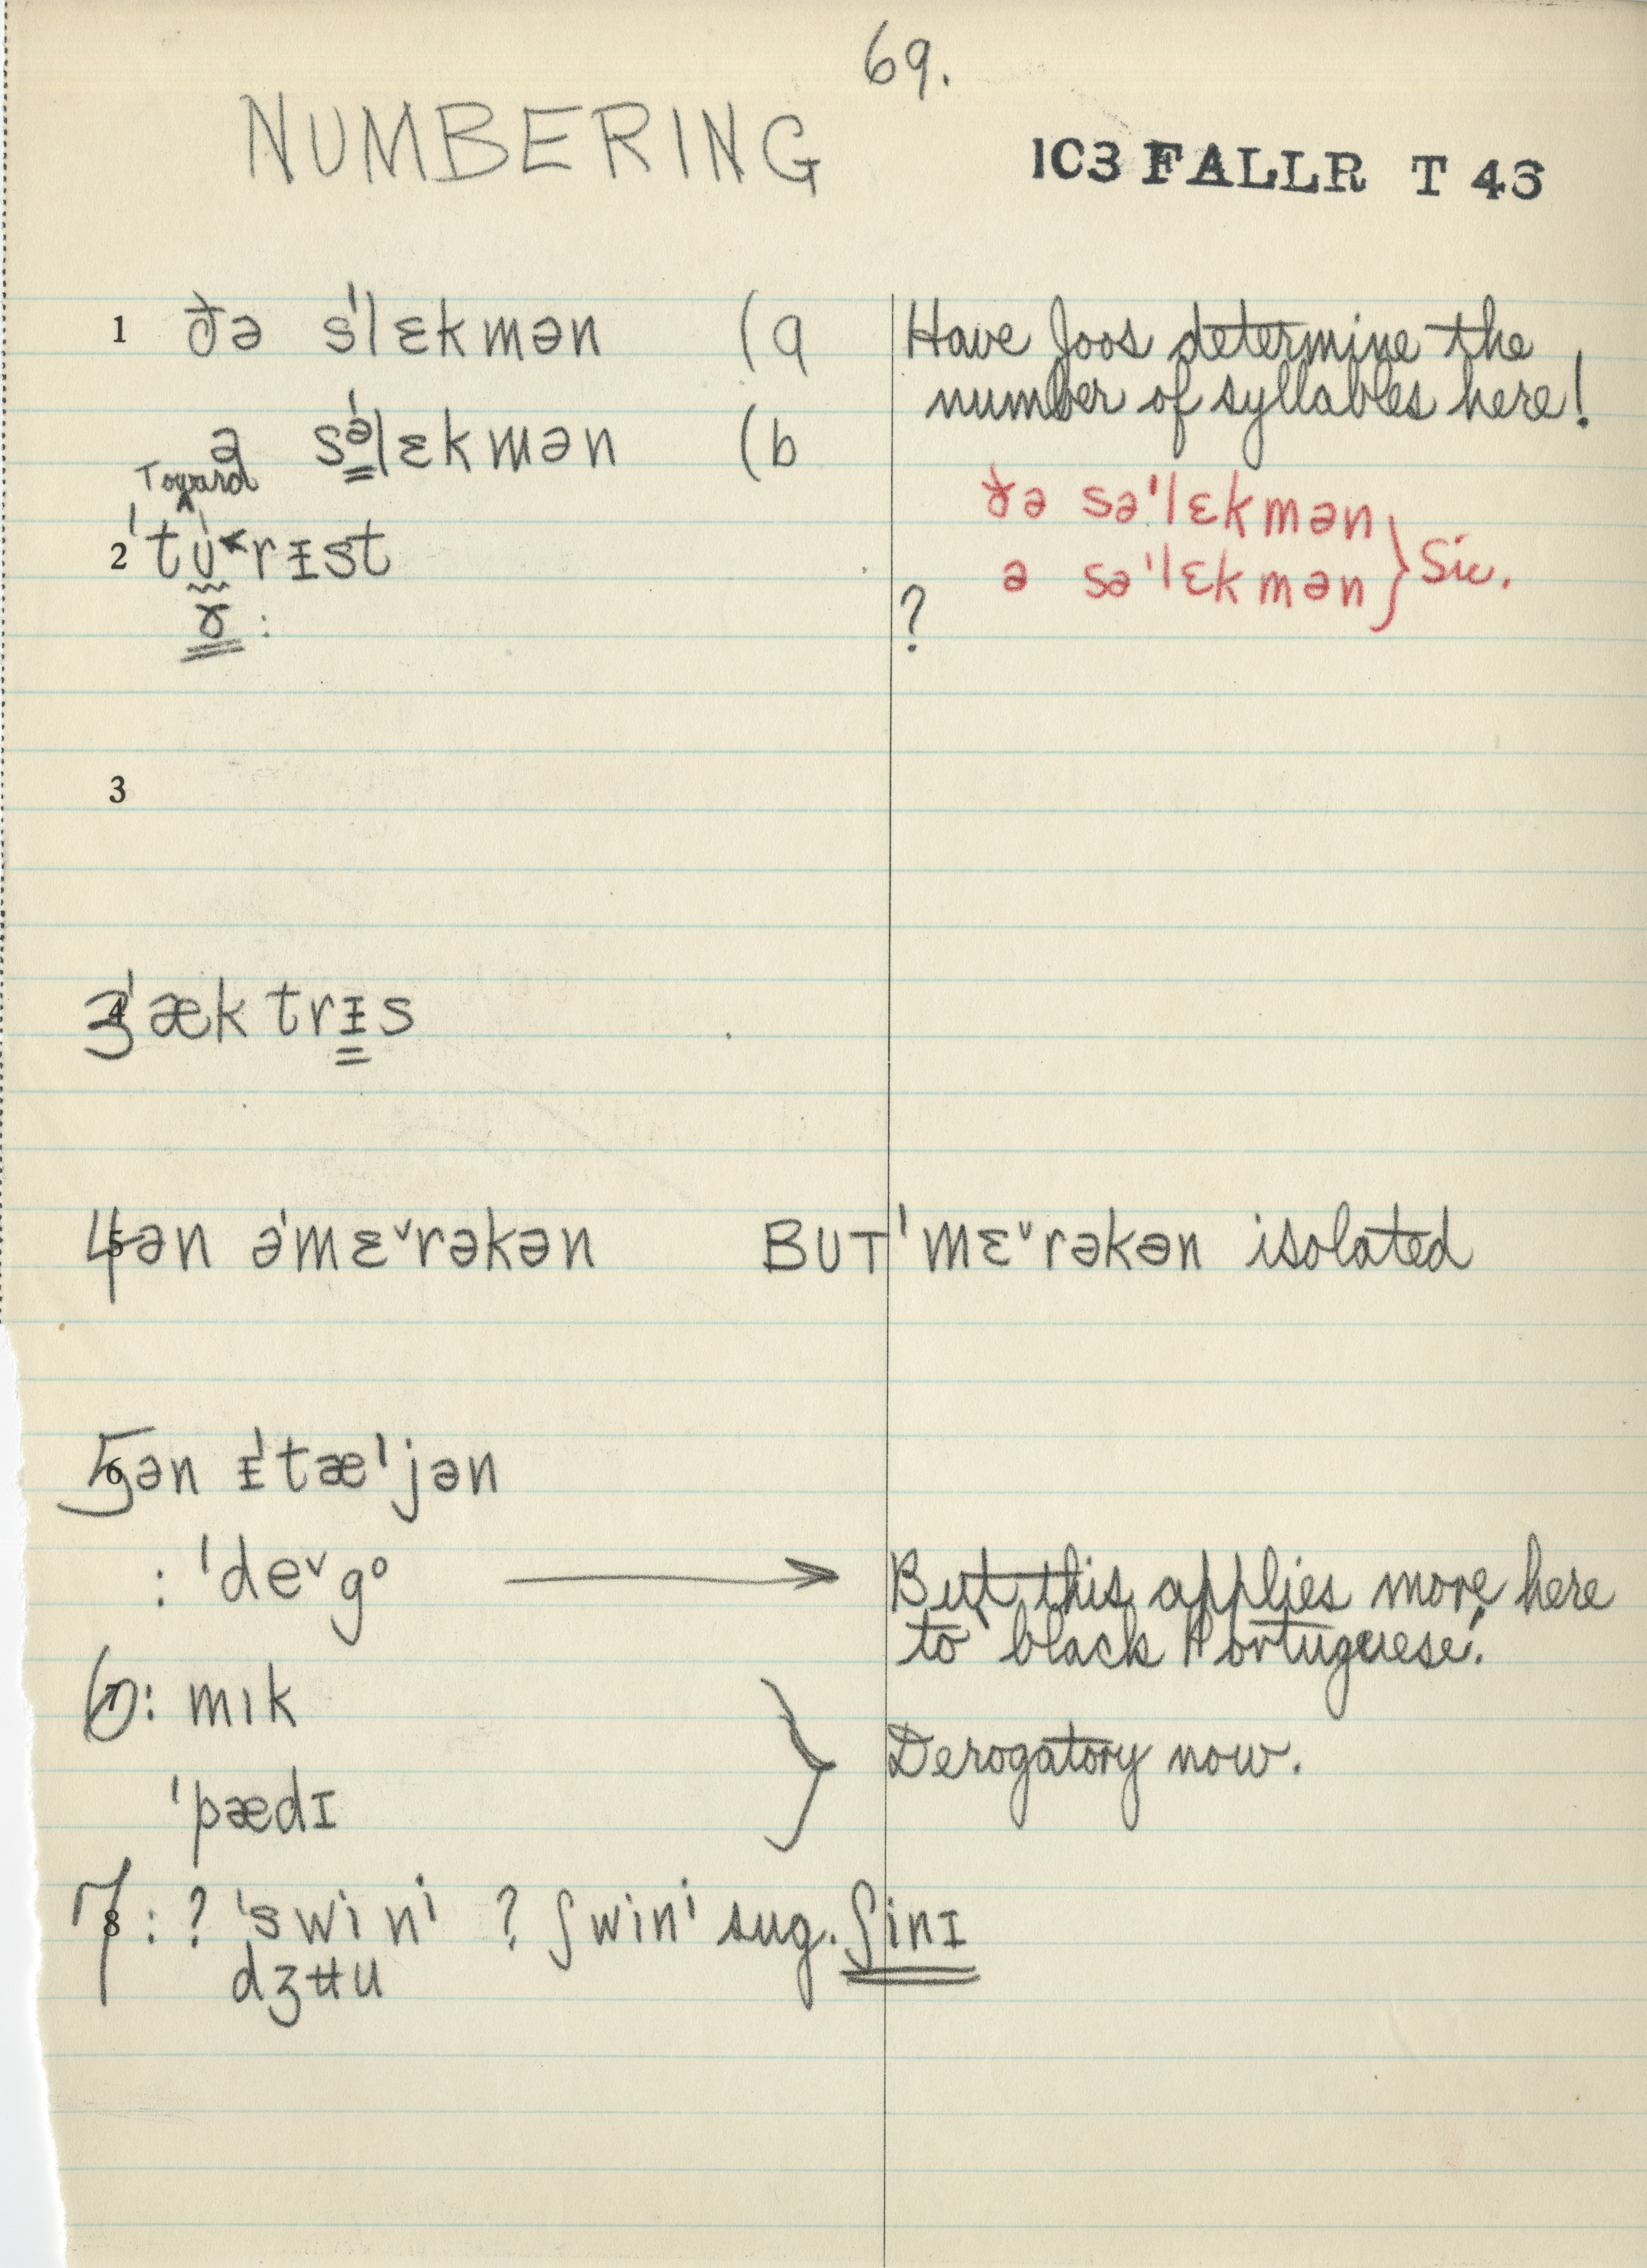 69.
NUMBERING
1C3 FALLR T 43
1 ðə s'lɛkmən (a Have Joos determine the
number of syllables here!
ə sə'lɛkmən (b
ðə sə'lɛkmən
ə sə'lɛkmən } Sic.
Toward
ʌ
2 'tᴜ˂rɪst
ɤ: ?
3
4 3 'æktrɪs
5 4 ən ə'mɛ˅rəkən BUT 'mɛ˅rəkən isolated
6 5 ən ɪ'tæl'jən
: 'de˅gᵒ → But this applies more here
to "black Portuguese."
7 6 : mɪk
'pædɪ } Derogatory now.
8 7 : ? 'swinⁱ ? ʃwinⁱ sug. ʃinɪ
dʒʉu